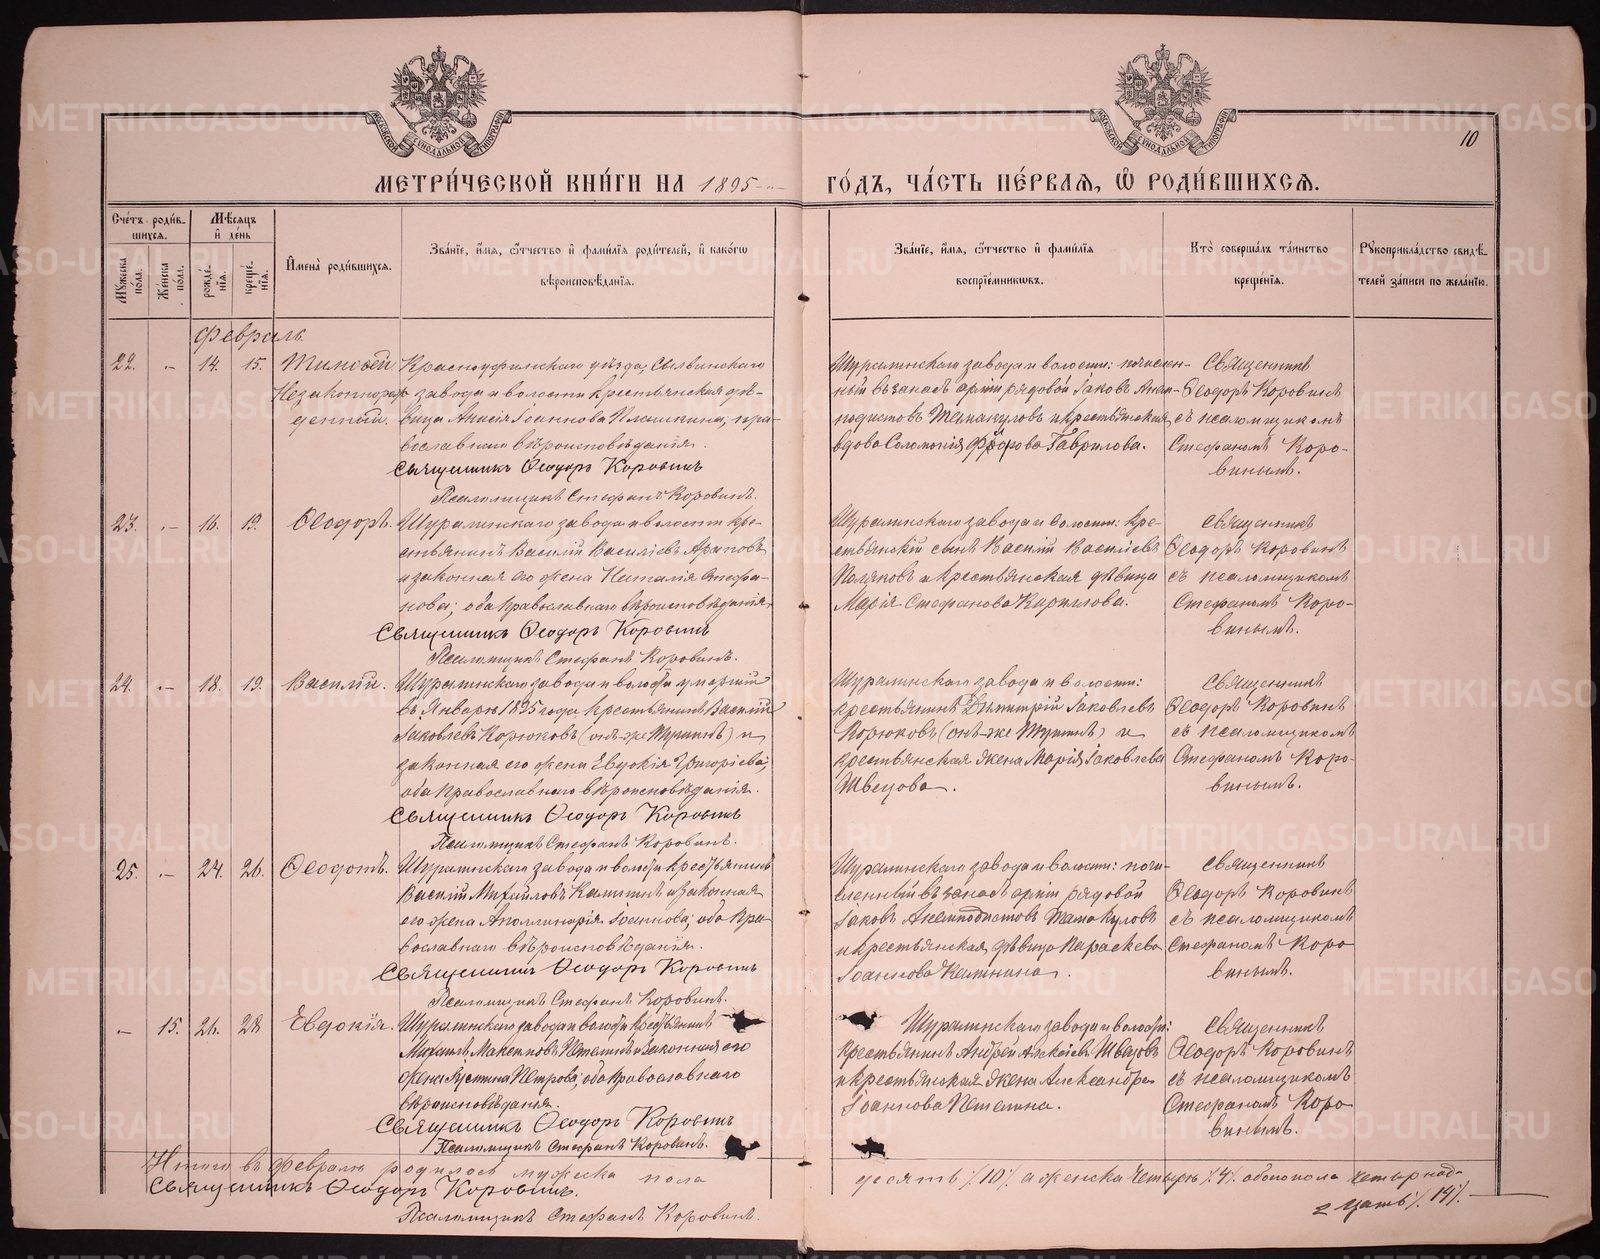 МЕТРИ́ЧЕСКОЙ КНИ́ГИ НА 1895
ГО́ДЪ, ЧА́СТЬ ПЕ́РВАѦ, Ѽ РОДИ́ВШИХСѦ.
10
Сче́тъ роди́в-
шихсѧ.
Мꙋ́жеска пола.
Же́нска пола.
Мѣ́сѧцъ
и҆ де́нь
рожде́-
нїѧ.
креще́-
нїѧ.
И҆мена̀ роди́вшихсѧ.
Зва́нїе, и҆́мѧ, ѻ҆́тчество и҆ фами́лїѧ роди́телей, и҆ како́гѡ
вѣроисповѣ́данїѧ.
Зва́нїе, и҆́мѧ, ѻ҆́тчество и҆ фами́лїѧ
воспрїе́мникѡвъ.
Кто̀ соверша́лъ та́инство
креще́нїѧ.
Рꙋкоприкла́дство свидѣ́-
телей за́писи по жела́нїю.
Февраль.
22. - 14. 15. Тимофей
Незаконорож
денный.
Красноуфимскаго уѣзда, Сылвинскаго
завода и волости крестьянская дѣ-
вица Анисія Іоаннова Плашкина, пра-
вославнаго вѣроисповѣданія.
Священникъ Ѳеодоръ Коровинъ
Псаломщикъ Стефанъ Коровинъ.
Шуралинскаго завода и волости: числен-
ный въ запасѣ арміи рядовой Іаковъ
и крестьянская
вдова Соломонія Гаврилова.
Священникъ
Ѳеодоръ Коровинъ
съ псаломщикомъ
Стефаномъ Коро-
винымъ.
23. - 16. 19. Ѳеодоръ.
Шуралинскаго завода и волости кре-
стьянинъ Василій Василіевъ Араповъ
и законная его жена Наталія Стефа-
нова; оба православнаго вѣроисповѣданія
Священникъ Ѳеодоръ Коровинъ
Псаломщикъ Стефанъ Коровинъ.
Шуралинскаго завода и волости: кре-
стьянскій сынъ Василій Василіевъ
Поляковъ и крестьянская дѣвица
Марія Стефанова Кириллова.
Священникъ
Ѳеодоръ Коровинъ
съ псаломщикомъ
Стефаномъ Коро-
винымъ.
24. - 18. 19. Василій.
Шуралинскаго завода и волости умершій
въ Январѣ 1895 года крестьянинъ Василій
Іаковлевъ Корюковъ (онъ-же) и
законная его жена Евдокія Григоріева;
оба православнаго вѣроисповѣданія.
Священникъ Ѳеодоръ Коровинъ
Псаломщикъ Стефанъ Коровинъ.
Шуралинскаго завода и волости:
крестьянинъ Димитрій Іаковлевъ
Корюковъ (онъ-же) и
крестьянская жена Марія Іаковлева
Швецова.
Священникъ
Ѳеодоръ Коровинъ
съ псаломщикомъ
Стефаномъ Коро-
винымъ.
25. - 24. 26. Ѳеодотъ.
Шуралинскаго завода и волости крестьянинъ
Василій Михайловъ Калининъ и законная
его жена Аполлинарія Іоаннова; оба пра-
вославнаго вѣроисповѣданія.
Священникъ Ѳеодоръ Коровинъ
Псаломщикъ Стефанъ Коровинъ.
Шуралинскаго завода и волости:
въ запасъ арміи рядовой
Іаковъ
и крестьянская дѣвица Параскева
Іоаннова Калинина.
Священникъ
Ѳеодоръ Коровинъ
съ псаломщикомъ
Стефаномъ Коро
винымъ.
- 15. 26. 28. Евдокія.
Шуралинскаго завода и волости крестьянинъ
Михаилъ Максимовъ Пѣтелинъ и законная его
жена Іустина Петрова; оба православнаго
вѣроисповѣданія.
Священникъ Ѳеодоръ Коровинъ
Псаломщикъ Стефанъ Коровинъ.
Шуралинскаго завода и волости:
крестьянинъ Андрей Алексіевъ Швецовъ
и крестьянская жена Александра
Іоаннова Пѣтелина.
Священникъ
Ѳеодоръ Коровинъ
съ псаломщикомъ
Стефаномъ Коро
винымъ.
Итого въ Февралѣ родилось мужеска пола
десять /10/, а женска четыре /4/, обоего пола четырнад-
цать /14/.
Священникъ Ѳеодоръ Коровинъ.
Псаломщикъ Стефанъ Коровинъ.
METRIKI.GASO-URAL.RU